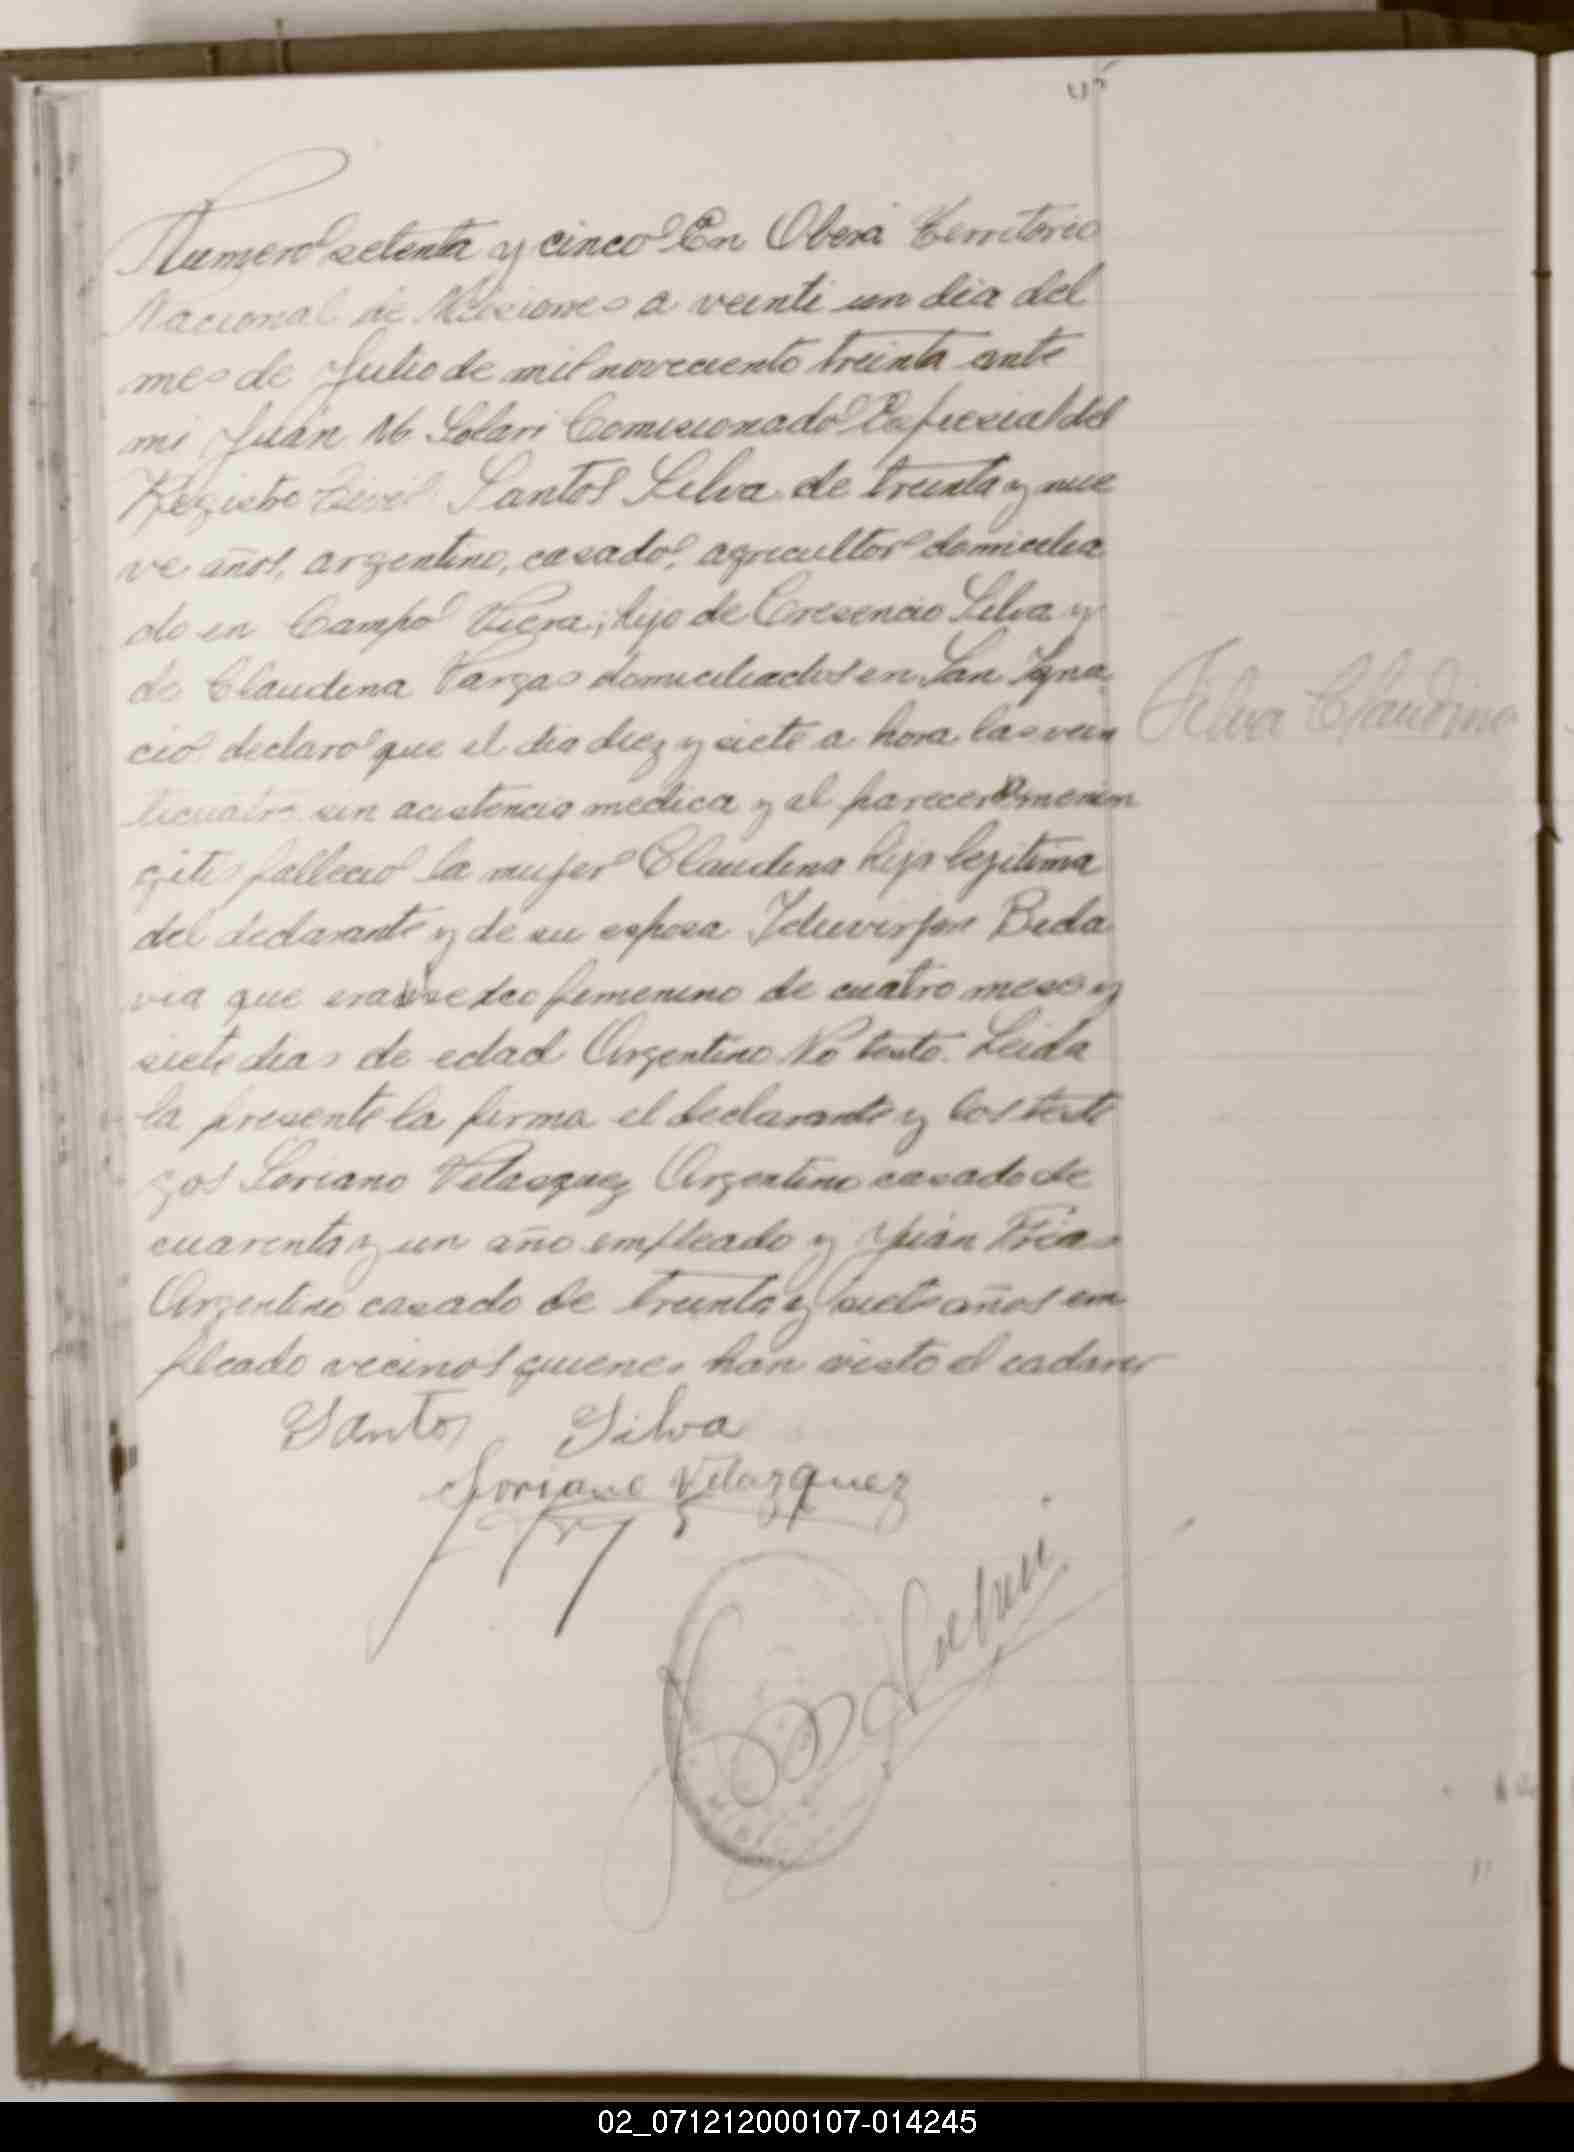 Numero setenta y cinco En Oberá Territorio
Nacional de Misiones a veinti un dia del
mes de Julio de mil noveciento treinta ante
mi Juan M. Solari Comisionado Especial del
Registro Civil Santos Silva de treinta y nue
ve años, argentino, casado, agricultor domicilia
do en Campo Viera, hijo de Cresencio Silva y
de Claudina Vargas domiciliados en San Igna
cio declaro que el dia diez y siete a hora las vein
ticuatro sin acistencia medica y al parecer menin
gitis fallecio la mujer Claudina hija legitima
del declarante y de su esposa Beda
via que era sexo femenino de cuatro meses y
siete dias de edad Argentino No testo. Leida
la presente la firma el declarante y los testi
gos Soriano Velasquez Argentino casado de
cuarenta y un año empleado y Juan Frias
Argentino casado de treinta y siete años em
pleado vecinos quienes han visto el cadaver
Silva Claudina
Santos Silva
Soriano Velazquez
02_071212000107-014245